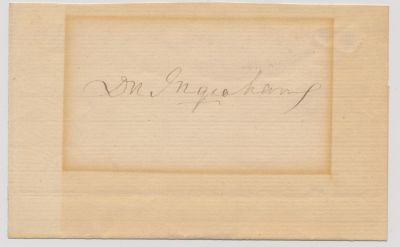 DN Ingraham